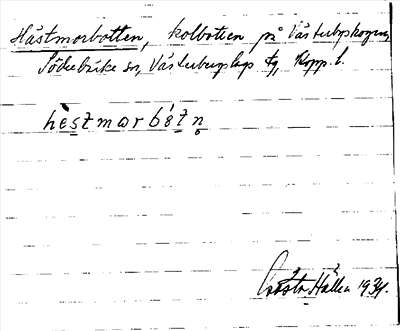 Hästmorbotten, kolbotten på Västerbyskogen,
Söderbärke sn, Västerbergslags tg, Kopp. l.
hèstmωrbótn̥
Gösta Hälla 1934.